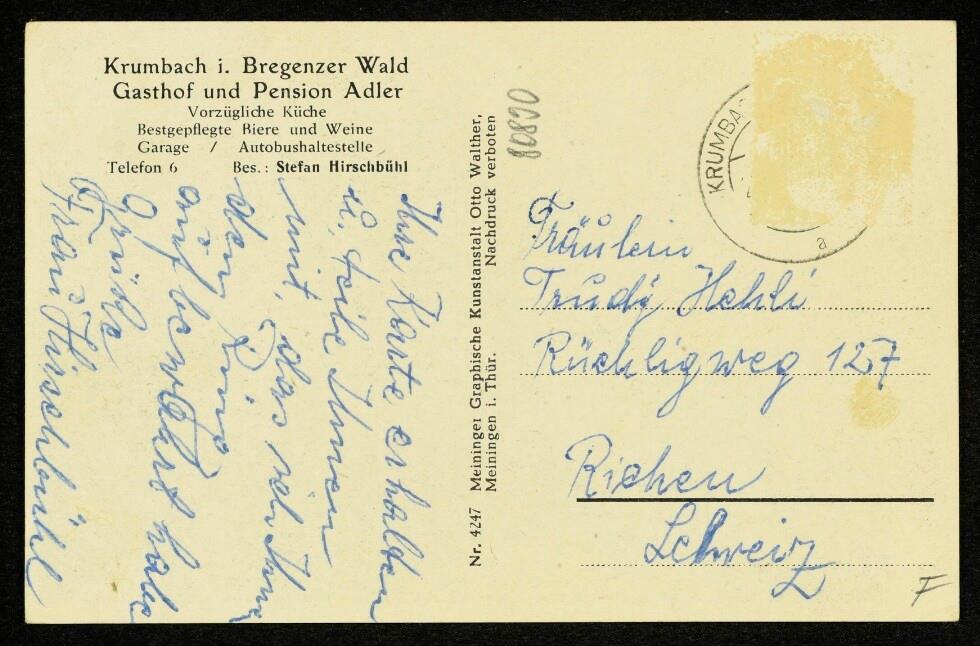 Krumbach i. Bregenzer Wald
Gasthof und Pension Adler
Vorzügliche Küche
Bestgepflegte Biere und Weine
Garage / Autobushaltestelle
Telefon 6 Bes.: Stefan Hirschbühl
Ihre Karte erhalten
u. teile Ihnen
mit, das ich Ihnen
den
aufbewahrt habe
Grüße
Frau Hirschbühl
Nr. 4247 Meininger Graphische Kunstanstalt Otto Walther,
Meiningen i. Thür. Nachdruck verboten
80830
KRUMBA
a
Fräulein
Trudy Hehli
Rüchligweg 127
Riehen
Schweiz
F